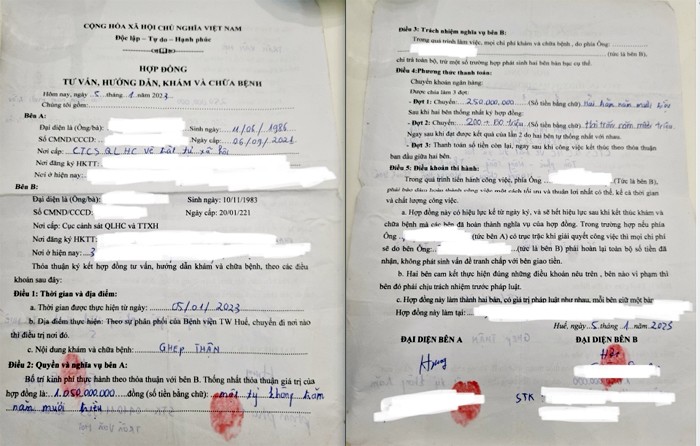 CỘNG HÒA XÃ HỘI CHỦ NGHĨA VIỆT NAM
Độc lập – Tự do – Hạnh phúc
HỢP ĐỒNG
TƯ VẤN, HƯỚNG DẪN, KHÁM VÀ CHỮA BỆNH
Hôm nay, ngày 5 tháng 1 năm 2023
Chúng tôi gồm:
Bên A:
Đại diện là (Ông/bà): Sinh ngày: 11/06/1986
Số CMND/CCCD: Ngày cấp: 06/09/2021
Nơi cấp: CTCS QLHC về trật tự xã hội
Nơi đăng ký HKTT:
Nơi ở hiện nay:
Bên B:
Đại diện là (Ông/bà): Sinh ngày: 10/11/1983
Số CMND/CCCD: Ngày cấp: 20/01/221
Nơi cấp: Cục cảnh sát QLHC và TTXH
Nơi đăng ký HKTT:
Nơi ở hiện nay: 3
Thỏa thuận ký kết hợp đồng tư vấn, hướng dẫn khám và chữa bệnh, theo các điều
khoản sau đây:
Điều 1: Thời gian và địa điểm:
a. Thời gian được thực hiện từ ngày: 05/01/2023
b. Địa điểm thực hiện: Theo sự phân phối của Bệnh viện TW Huế, chuyển đi nơi nào
thì điều trị nơi đó.
c. Nội dung khám và chữa bệnh: GHÉP THẬN
Điều 2: Quyền và nghĩa vụ bên A:
Bố trí kinh phí thực hiện theo thỏa thuận với bên B. Thống nhất thỏa thuận giá trị của
hợp đồng là: 1.050.000.000 đồng (số tiền bằng chữ): một tỷ không trăm
năm mươi triệu
Điều 3: Trách nhiệm nghĩa vụ bên B:
Trong quá trình làm việc, mọi chi phí khám và chữa bệnh, do phía Ông:
(tức là bên B),
chi trả toàn bộ, trừ một số trường hợp phát sinh hai bên bàn bạc cụ thể.
Điều 4:Phương thức thanh toán:
Chuyển khoản ngân hàng:
Được chia làm 3 đợt:
- Đợt 1: Chuyển: 250.000.000 (Số tiền bằng chữ) Hai trăm năm mươi triệu
Sau khi hai bên thống nhất ký hợp đồng:
- Đợt 2: Chuyển: (Số tiền bằng chữ)
Ngay sau khi đạt được kết quả của lần 2 do hai bên tự thống nhất với nhau.
- Đợt 3: Thanh toán số tiền còn lại, ngay sau khi công việc kết thúc theo thỏa thuận
ban đầu giữa hai bên.
Điều 5: Điều khoản thi hành:
Trong quá trình tiến hành công việc, phía Ông (Tức là bên B),
phải bảo đảm thành công việc một cách tối ưu và thuận lợi nhất có thể, kể cả thời gian
và chất lượng công việc.
a. Hợp đồng này có hiệu lực kể từ ngày ký, và sẽ hết hiệu lực sau khi kết thúc khám và
chữa bệnh mà các bên đã hoàn thành nghĩa vụ của hợp đồng. Trong trường hợp nếu phía
Ông (tức bên A) có trục trặc khi giải quyết công việc thì mọi chi phí
sẽ do bên Ông: (tức là bên B) phải hoàn lại toàn bộ số tiền đã
nhận, không phát sinh vấn đề tranh chấp với bên giao tiền.
b. Hai bên cam kết thực hiện đúng những điều khoản nêu trên, bên nào vi phạm thì
bên đó phải chịu trách nhiệm trước pháp luật.
c. Hợp đồng này làm thành hai bản, có giá trị pháp luật như nhau, mỗi bên giữ một bản
Hợp đồng này làm tại:
Huế, ngày 5 tháng 1 năm 2023
ĐẠI DIỆN BÊN A ĐẠI DIỆN BÊN B
STK